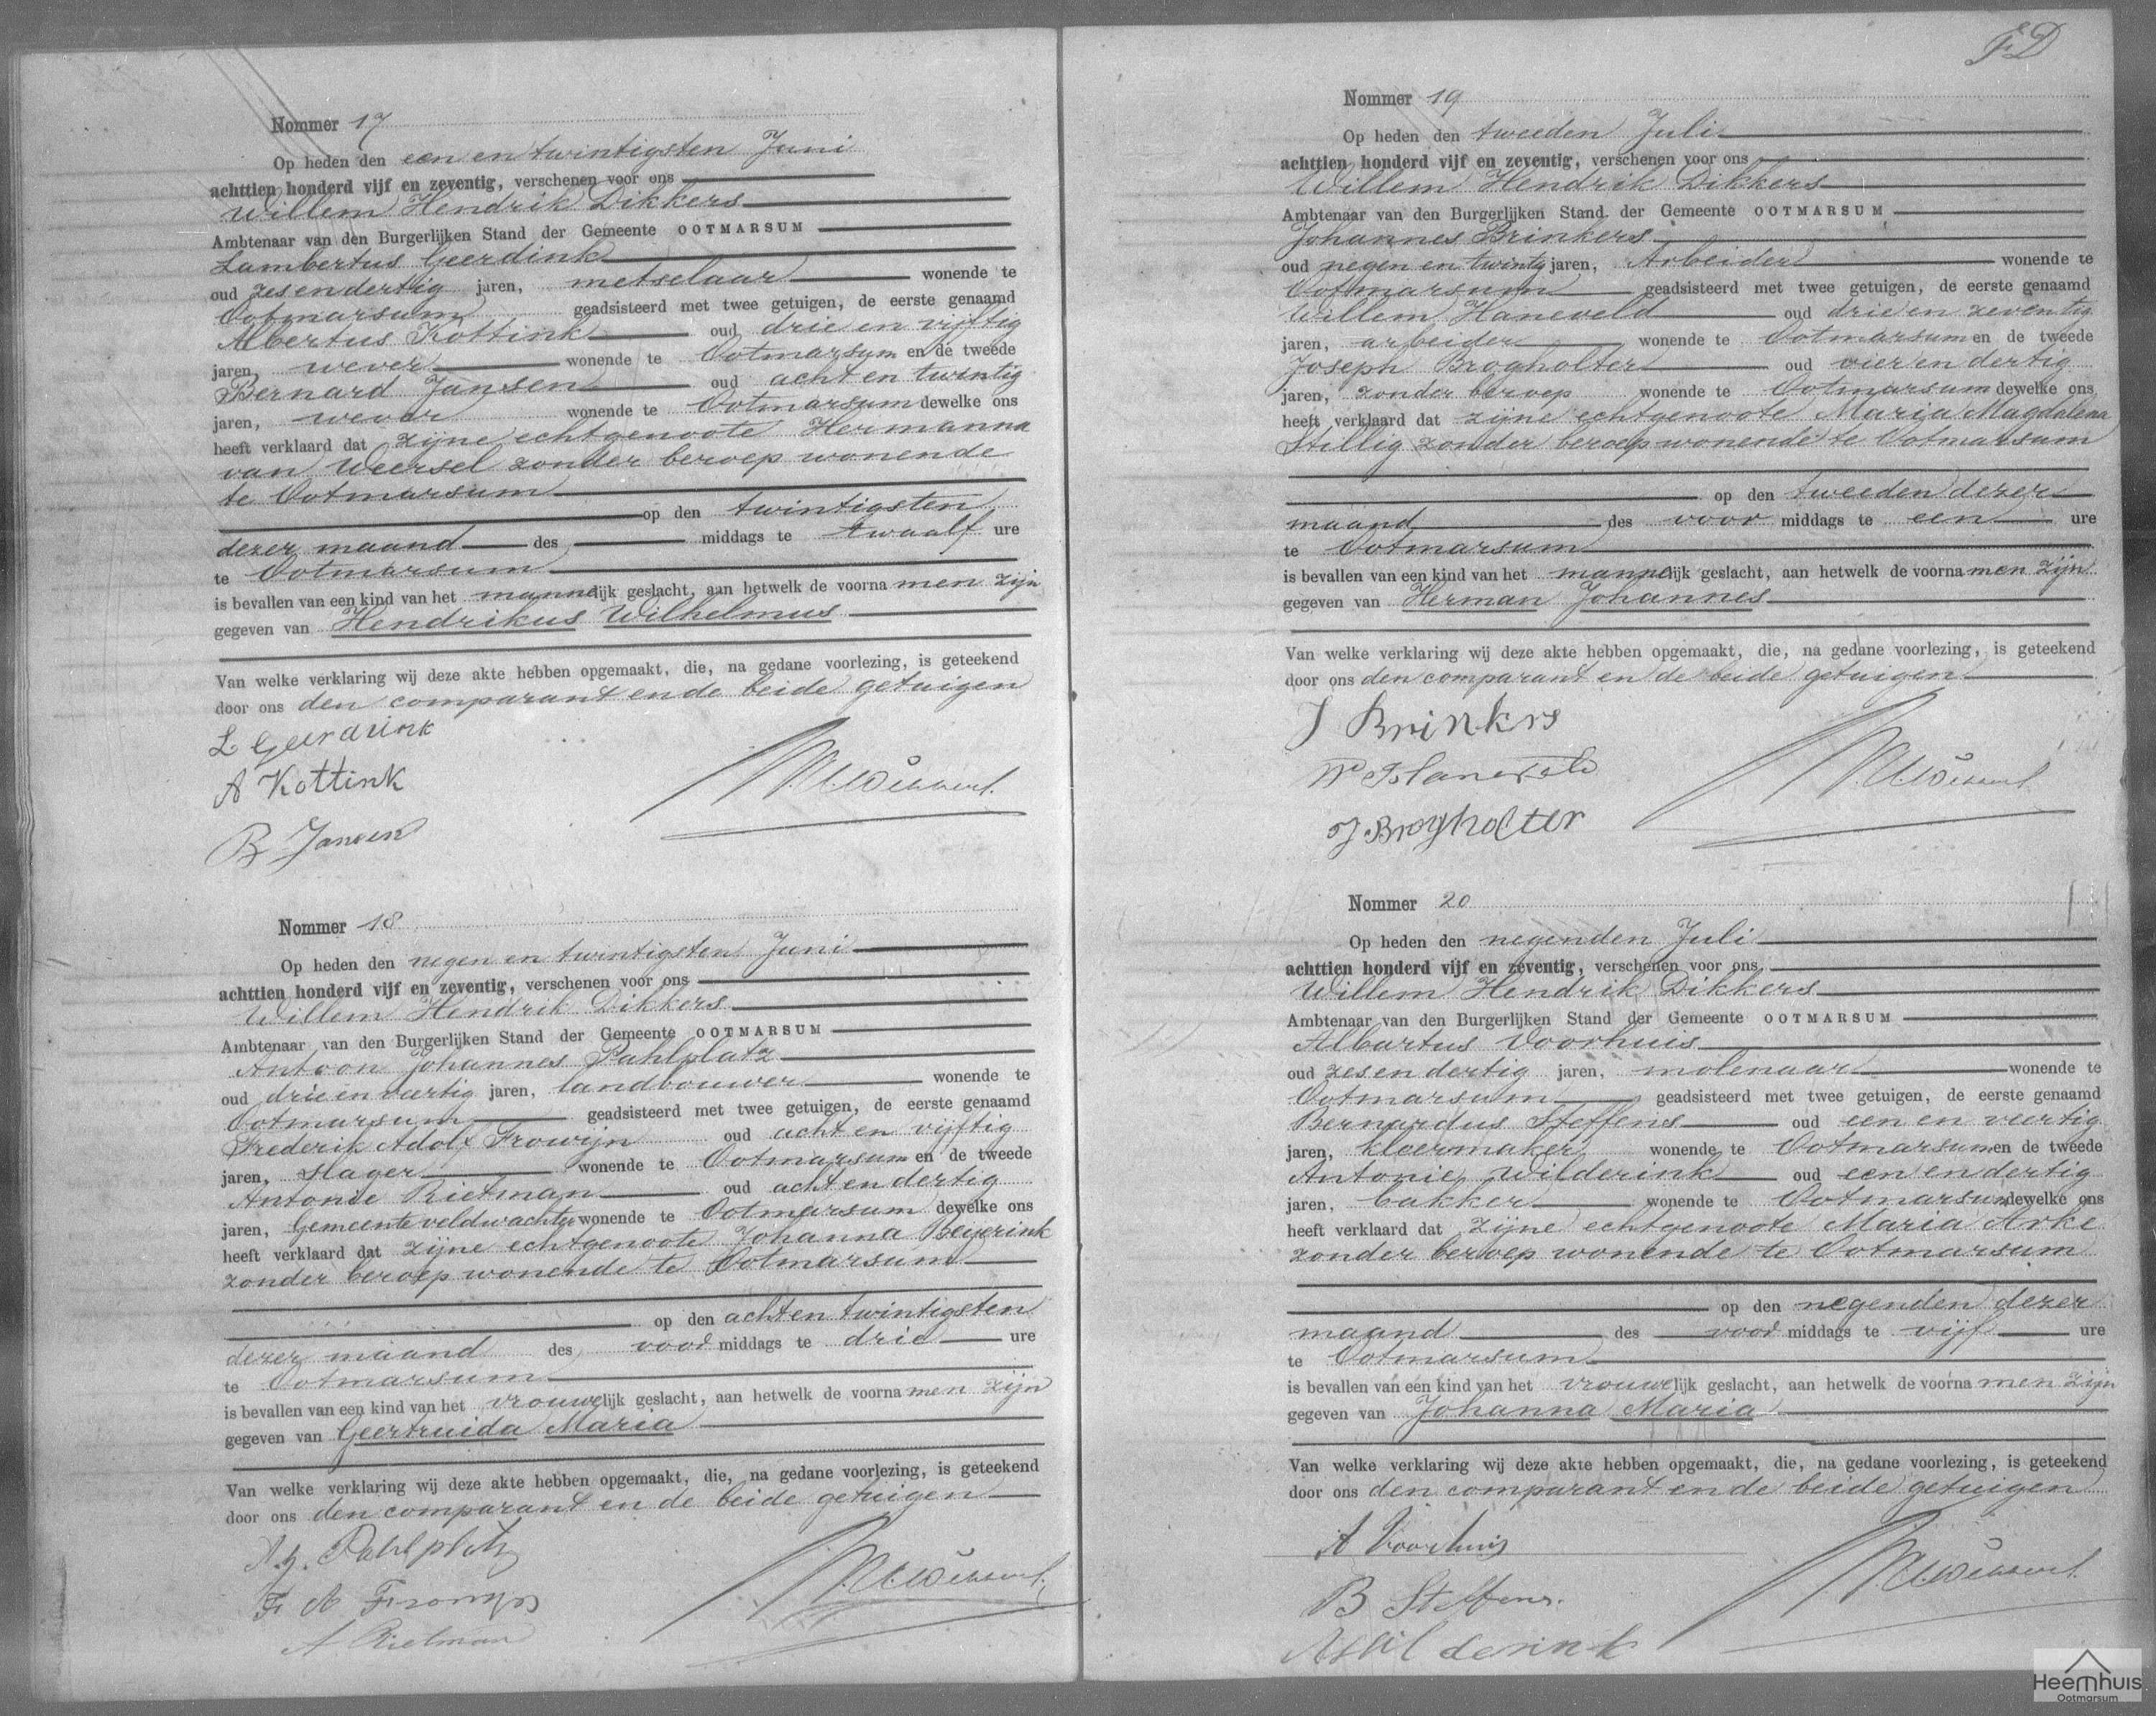 Nommer 17
Op heden den een en twintigsten Juni
achttien honderd vijf en zeventig, verschenen voor ons
Willem Hendrik Dikkers
Ambtenaar van den Burgerlijken Stand der Gemeente OOTMARSUM
Lambertus Geerdink
oud zes en dertig jaren, metselaar wonende te
Ootmarsum geadsisteerd met twee getuigen, de eerste genaamd
Albertus Kottink oud drie en vijftig
jaren, wever wonende te Ootmarsum en de tweede
Bernard Jansen oud acht en twintig
jaren, wever wonende te Ootmarsum dewelke ons
heeft verklaard dat zijne echtgenoote Hermanna
van Weersel zonder beroep wonende
te Ootmarsum
op den twintigsten
dezer maand des middags te twaalf ure
te Ootmarsum
is bevallen van een kind van het mannelijk geslacht, aan hetwelk de voornamen zijn
gegeven van Hendrikus Wilhelmus
Van welke verklaring wij deze akte hebben opgemaakt, die, na gedane voorlezing, is geteekend
door ons den comparant en de beide getuigen
L Geerdink
A Kottink
B Jansen
Nommer 18
Op heden den negen en twintigsten Juni
achttien honderd vijf en zeventig, verschenen voor ons
Willem Hendrik Dikkers
Ambtenaar van den Burgerlijken Stand der Gemeente OOTMARSUM
Antoon Johannes Pahlplatz
oud drie en veertig jaren, landbouwer wonende te
Ootmarsum geadsisteerd met twee getuigen, de eerste genaamd
Frederik Adolf Frowijn oud acht en vijftig
jaren, slager wonende te Ootmarsum en de tweede
Antonie Rietman oud acht en dertig
jaren, Gemeente veldwachter wonende te Ootmarsum dewelke ons
heeft verklaard dat zijne echtgenoote Johanna Beyerink
zonder beroep wonende te Ootmarsum
op den acht en twintigsten
dezer maand des voor middags te drie ure
te Ootmarsum
is bevallen van een kind van het vrouwelijk geslacht, aan hetwelk de voornamen zijn
gegeven van Geertruida Maria
Van welke verklaring wij deze akte hebben opgemaakt, die, na gedane voorlezing, is geteekend
door ons den comparant en de beide getuigen
A.J. Pahlplatz
F A Frowijn
A Rietman
FD
Nommer 19
Op heden den tweeden Juli
achttien honderd vijf en zeventig, verschenen voor ons
Willem Hendrik Dikkers
Ambtenaar van den Burgerlijken Stand der Gemeente OOTMARSUM
Johannes Brinkers
oud negen en twintig jaren, Arbeider wonende te
Ootmarsum geadsisteerd met twee getuigen, de eerste genaamd
Willem Haneveld oud drie en zeventig
jaren, arbeider wonende te Ootmarsum en de tweede
Joseph Brogholter oud vier en dertig
jaren, zonder beroep wonende te Ootmarsum dewelke ons
heeft verklaard dat zijne echtgenoote Maria Magdalena
Stillig zonder beroep wonende te Ootmarsum
op den tweeden dezer
maand des voor middags te een ure
te Ootmarsum
is bevallen van een kind van het mannelijk geslacht, aan hetwelk de voornamen zijn
gegeven van Herman Johannes
Van welke verklaring wij deze akte hebben opgemaakt, die, na gedane voorlezing, is geteekend
door ons den comparant en de beide getuigen
J Brinkrs
W Haneveld
J Brogholter
Nommer 20
Op heden den negenden Juli
achttien honderd vijf en zeventig, verschenen voor ons
Willem Hendrik Dikkers
Ambtenaar van den Burgerlijken Stand der Gemeente OOTMARSUM
Albartus Voorhuis
oud zes en dertig jaren, molenaar wonende te
Ootmarsum geadsisteerd met twee getuigen, de eerste genaamd
Bernardus Steffens oud een en veertig
jaren, kleermaker wonende te Ootmarsum en de tweede
Antonie Wilderink oud een en dertig
jaren, bakker wonende te Ootmarsum dewelke ons
heeft verklaard dat zijne echtgenoote Maria Arke
zonder beroep wonende te Ootmarsum
op den negenden dezer
maand des voor middags te vijf ure
te Ootmarsum
is bevallen van een kind van het vrouwelijk geslacht, aan hetwelk de voornamen zijn
gegeven van Johanna Maria
Van welke verklaring wij deze akte hebben opgemaakt, die, na gedane voorlezing, is geteekend
door ons den comparant en de beide getuigen
A Voorhuis
B Steffens.
A Wilderink
Heemhuis
Ootmarsum